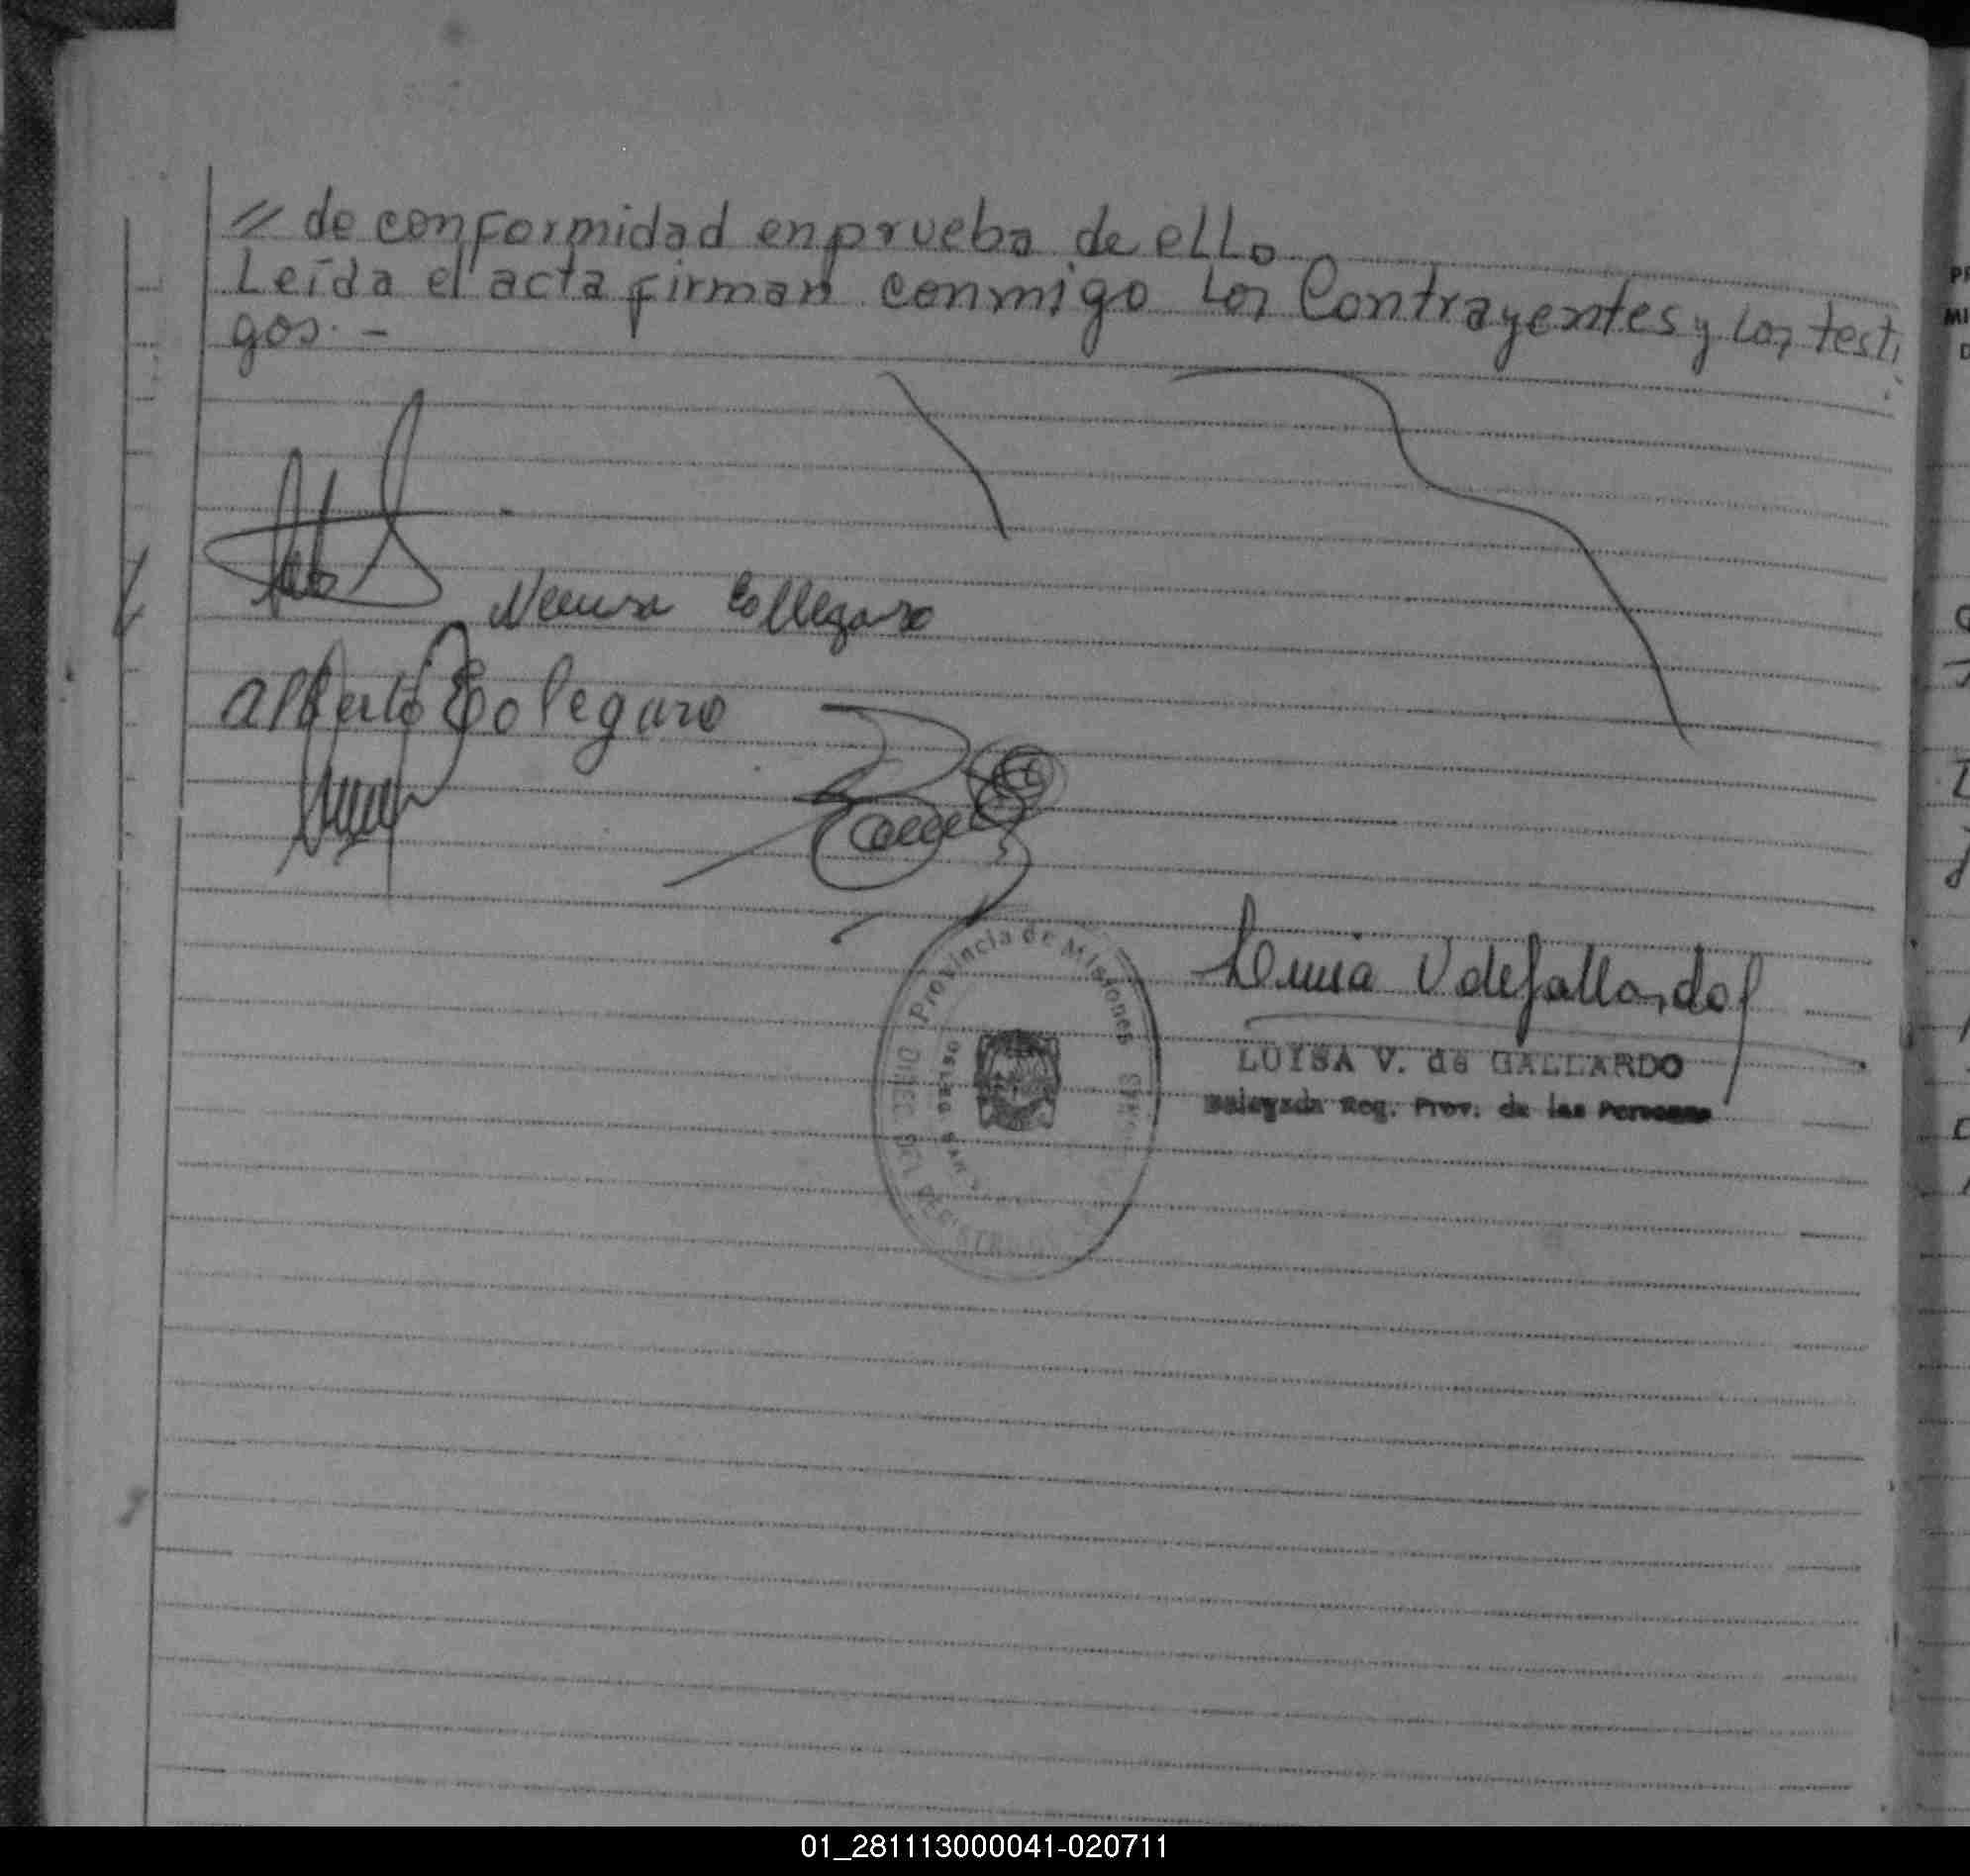 // de conformidad en prueba de ello
Leída el acta firman conmigo los Contrayentes y los testi
gos. -
Collegaro
Alberto Colegaro
Provincia de Misiones
Luisa V de Gallardo
LUISA V. de GALLARDO
Delegada Reg. Prov. de las Personas
01_281113000041-020711